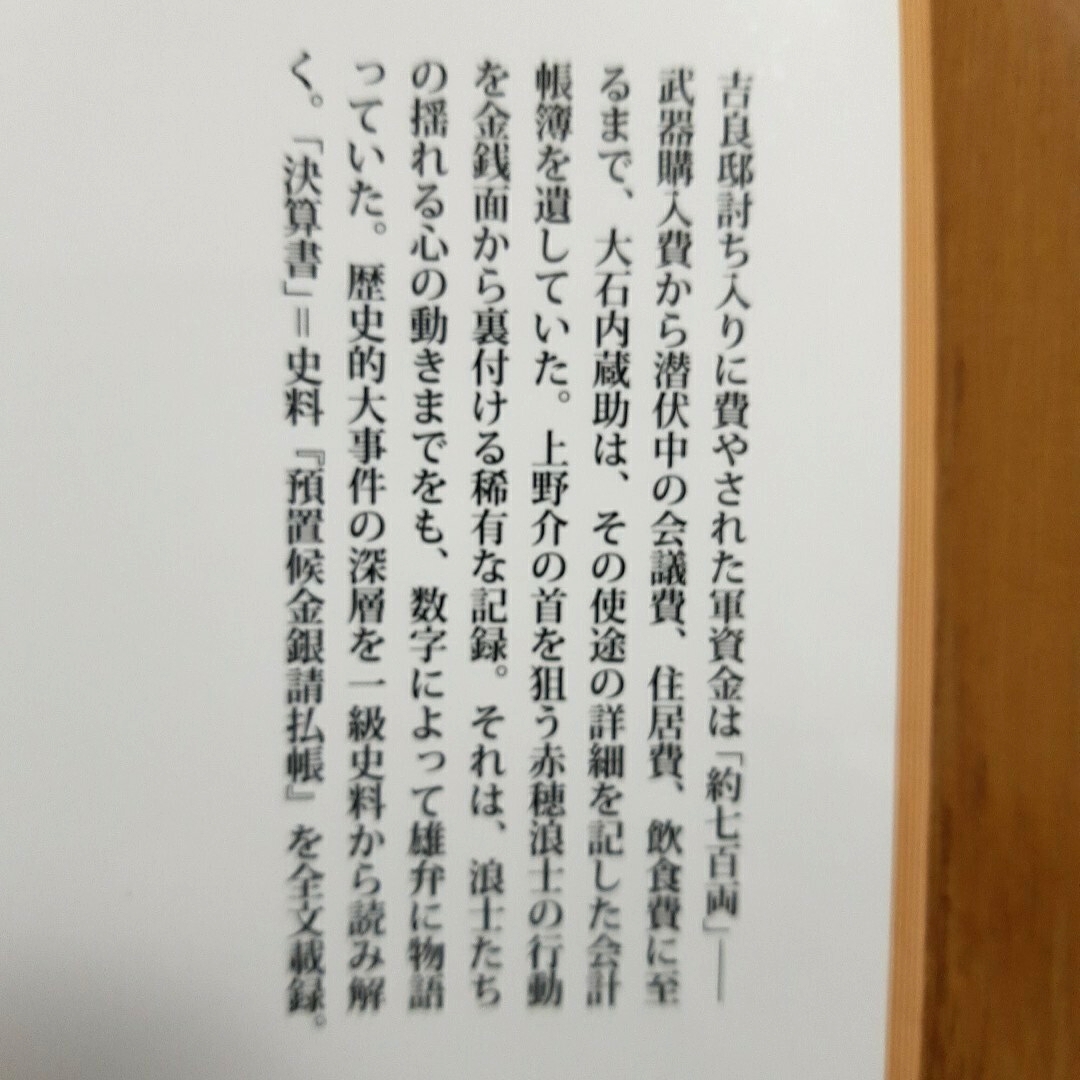 吉良邸討ち入りに費やされた軍資金は「約七百両」――
武器購入費から潜伏中の会議費、住居費、飲食費に至
るまで、大石内蔵助は、その使途の詳細を記した会計
帳簿を遺していた。上野介の首を狙う赤穂浪士の行動
を金銭面から裏付ける稀有な記録。それは、浪士たち
の揺れる心の動きまでをも、数字によって雄弁に物語
っていた。歴史的大事件の深層を一級史料から読み解
く。「決算書」＝史料『預置候金銀請払帳』を全文載録。